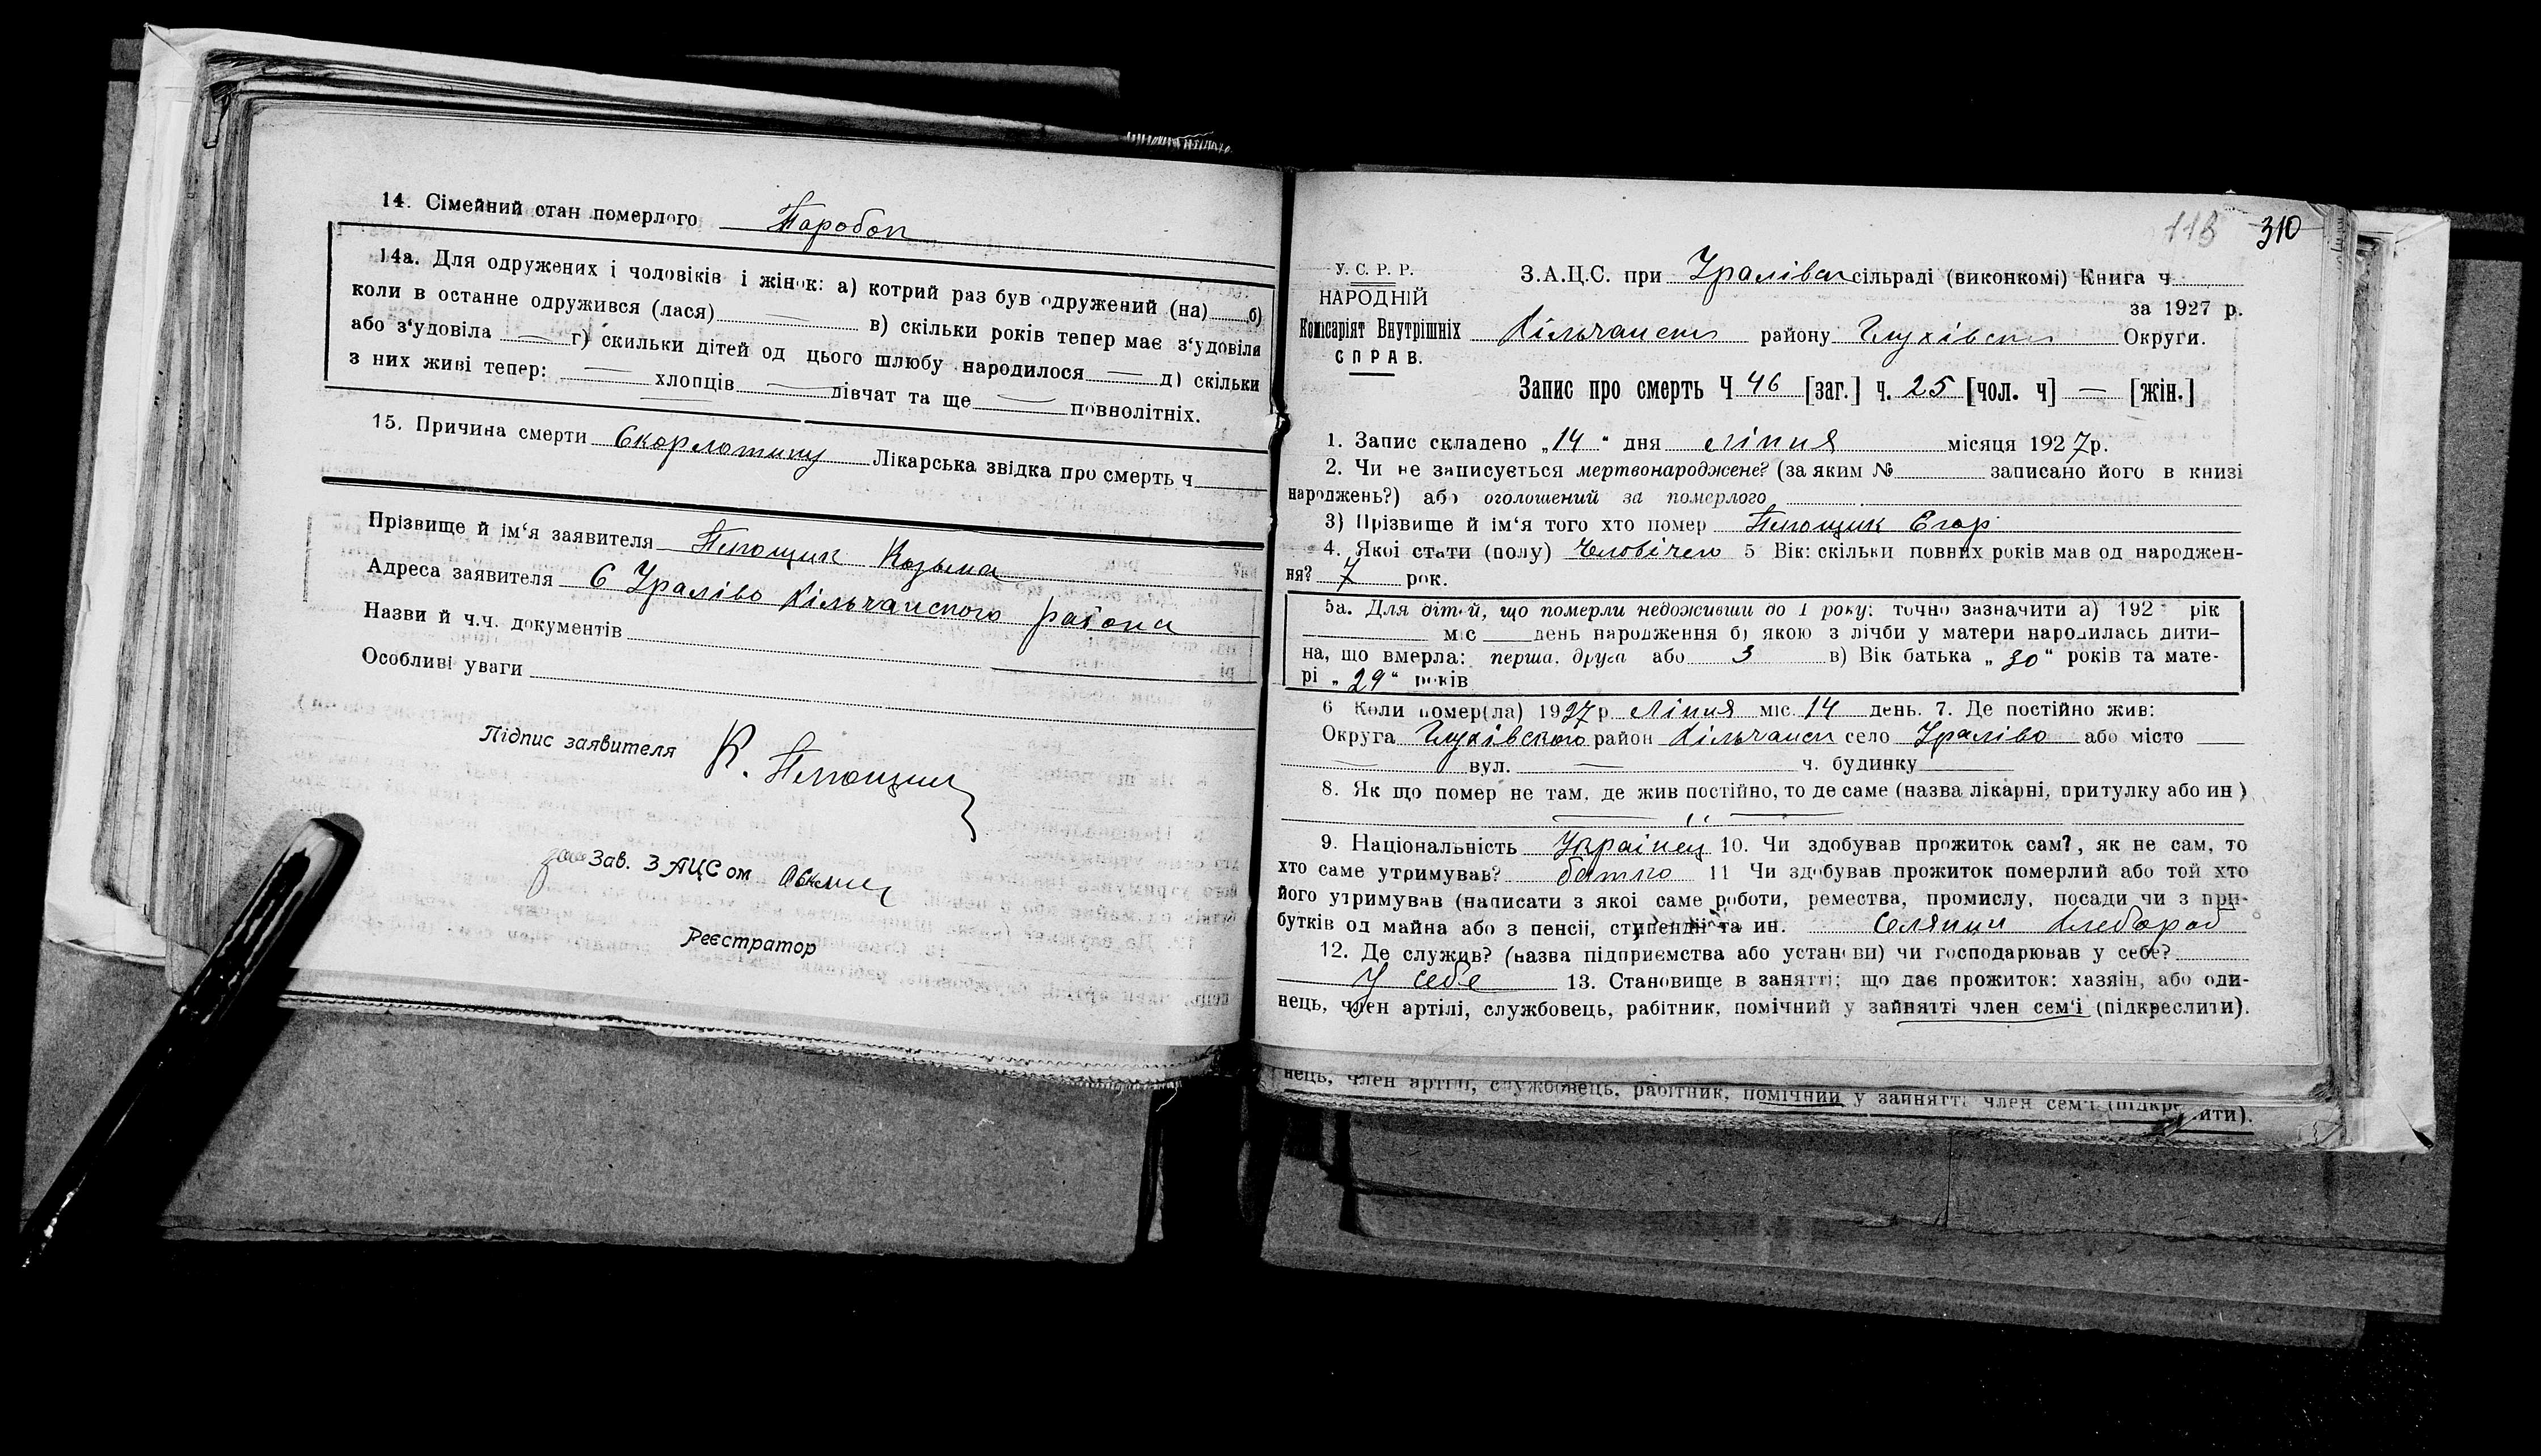 14. Сімейний стан померлого Паробок
14а. Для одружених і чоловіків і жінок: а) котрий раз був одружений (на) б)
коли в останне одружився (лася) в) скільки років тепер має з'удовіла
або з'удовіла г) скильки дітей од цього шлюбу народилося д) скільки
з них живі тепер: хлопців дівчат та ще повнолітніх.
15. Причина смерти Скорлотину Лікарська звідка про смерть ч
Прізвище й ім'я заявителя Плющик Козьма
Адреса заявителя С Уралівo Хільчанского района
Назви й ч.ч. документів
Особливі уваги
Підпис заявителя К. Плющик
Зав. ЗАЦСом
Реєстратор
118 310
У. С. Р. Р.
НАРОДНІЙ
Комісаріят Внутрішніх
СПРАВ.
З.А.Ц.С. при Уралівск сільраді (виконкомі) Книга ч
за 1927 р.
Хільчанськ району Глухівськ Округи.
Запис про смерть Ч 46 [заг.] ч. 25 [чол. ч] — [жін.]
1. Запис складено „14“ дня Ліпня місяця 1927р.
2. Чи не записується мертвонароджене? (за яким № записано його в книзі
народжень?) або оголошений за померлого
3) Прізвище й ім'я того хто помер Плющик Егор
4. Якої стати (полу) Чоловічего 5 Вік: скільки повних років мав од народжен-
ня? 7 рок.
5а. Для дітей, що померли недоживши до 1 року: точно зазначити а) 192 рік
міс день народження б) якою з лічби у матери народилась дити-
на, що вмерла: перша, друга або 3 в) Вік батька „30“ років та мате-
рі „29“ років
6 Коли помер(ла) 1927р Ліпня міс. 14 день. 7. Де постійно жив:
Округа Глухівского район Хільчанск село Уралівo або місто
вул. ч. будинку
8. Як що помер не там, де жив постійно, то де саме (назва лікарні, притулку або ин)
9. Національність Украінец 10. Чи здобував прожиток сам?, як не сам, то
хто саме утримував? батко 11 Чи здобував прожиток померлий або той хто
його утримував (написати з якої саме роботи, ремества, промислу, посади чи з при-
бутків од майна або з пенсії, стипендії та ин. Селянин хлебороб
12. Де служив? (назва підприємства або установи) чи господарював у себе?
У себе 13. Становище в занятті; що дає прожиток: хазяін, або оди-
нець, член артілі, службовець, рабітник, помічний у зайнятті член сем'ї (підкреслити).
нець, член артілі, службовець, рабітник, помічний у зайнятті член сем'ї (підкреслити).